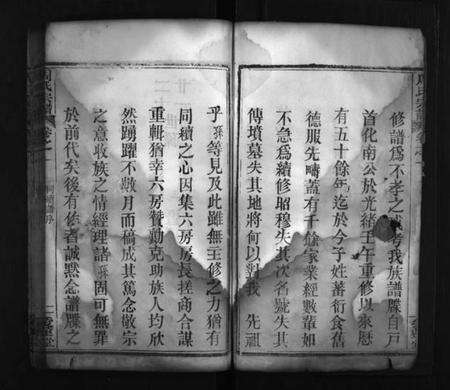 修譜爲不孝之 考我族譜牒自戸
首化南公於光緒壬午重修以來歴
有五十餘年迄於今子姓蕃衍食舊
德服先疇蓋有千餘家業經數輩如
不急爲續修昭穆失其次名號失其
傳墳墓失其地將何以對我 先祖
乎 等見及此雖無主修之力猶有
同積之心因集六房房長搓商合謀
重輯猶幸六房贊勤克助族人均欣
然踴躍不數月而稿成其篤念敬宗
之意收族之情經理諸 固可無罪
於前代矣後有作者誠默念譜牒之